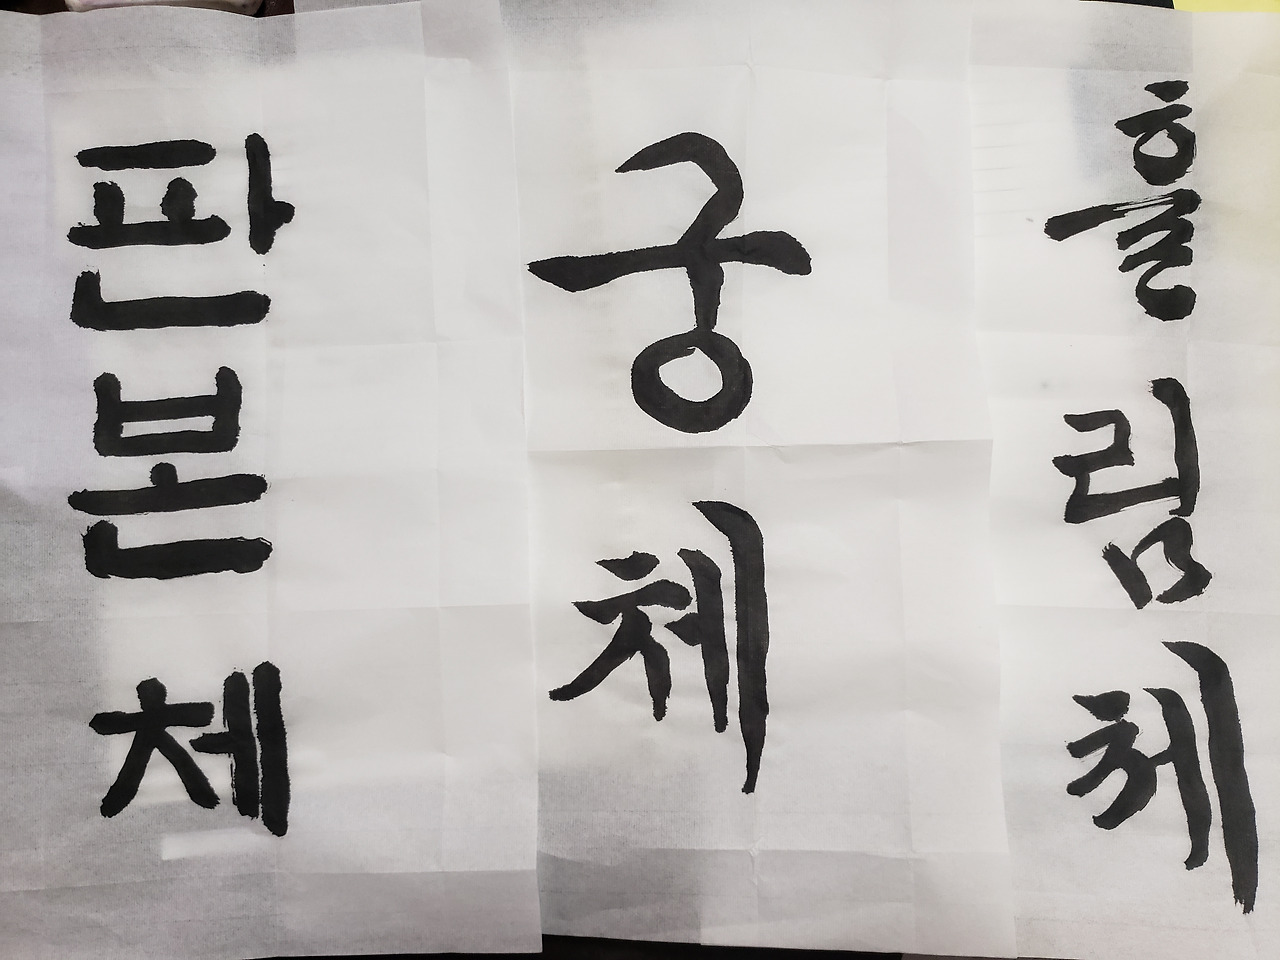 판본체
궁체
흘림체